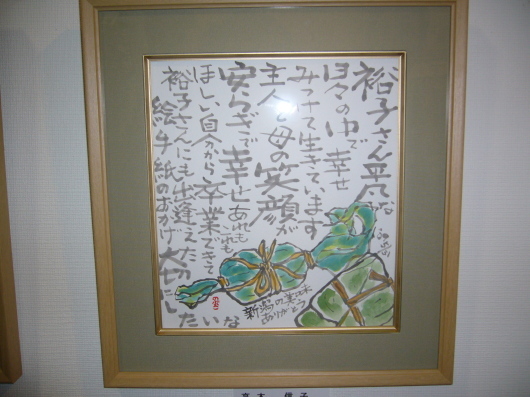 裕子さん平凡な
日々の中で幸せ
みつけて生きています
主人と母の笑顔が
安らぎで幸せあれもこれも
ほしい自分から卒業できて
裕子さんにも出逢えた
絵手紙のおかげ大切にしたいな
新潟の美味
ありがとう